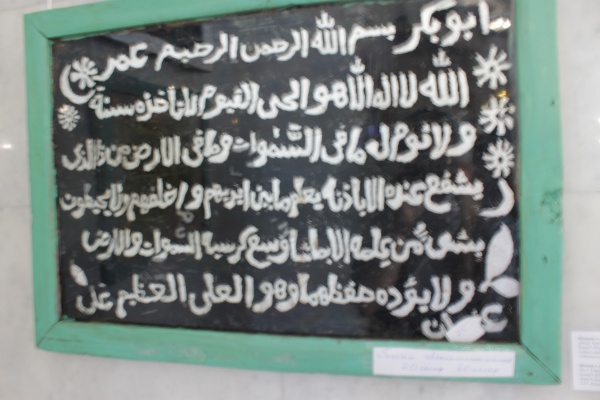 ابوبكر بسم الله الرحمن الرحيم عمر
الله لا اله الا هو الحي القيوم لا تاخذه سنة
ولا نوم له ما في السموات وما في الارض من ذا الذي
يشفع عنده الا باذنه يعلم ما بين ايديهم وما خلفهم ولا يحيطون
بشئ من علمه الا بما شاء وسع كرسيه السموات والارض
ولا يؤده حفظهما وهو العلي العظيم علي
عثمان